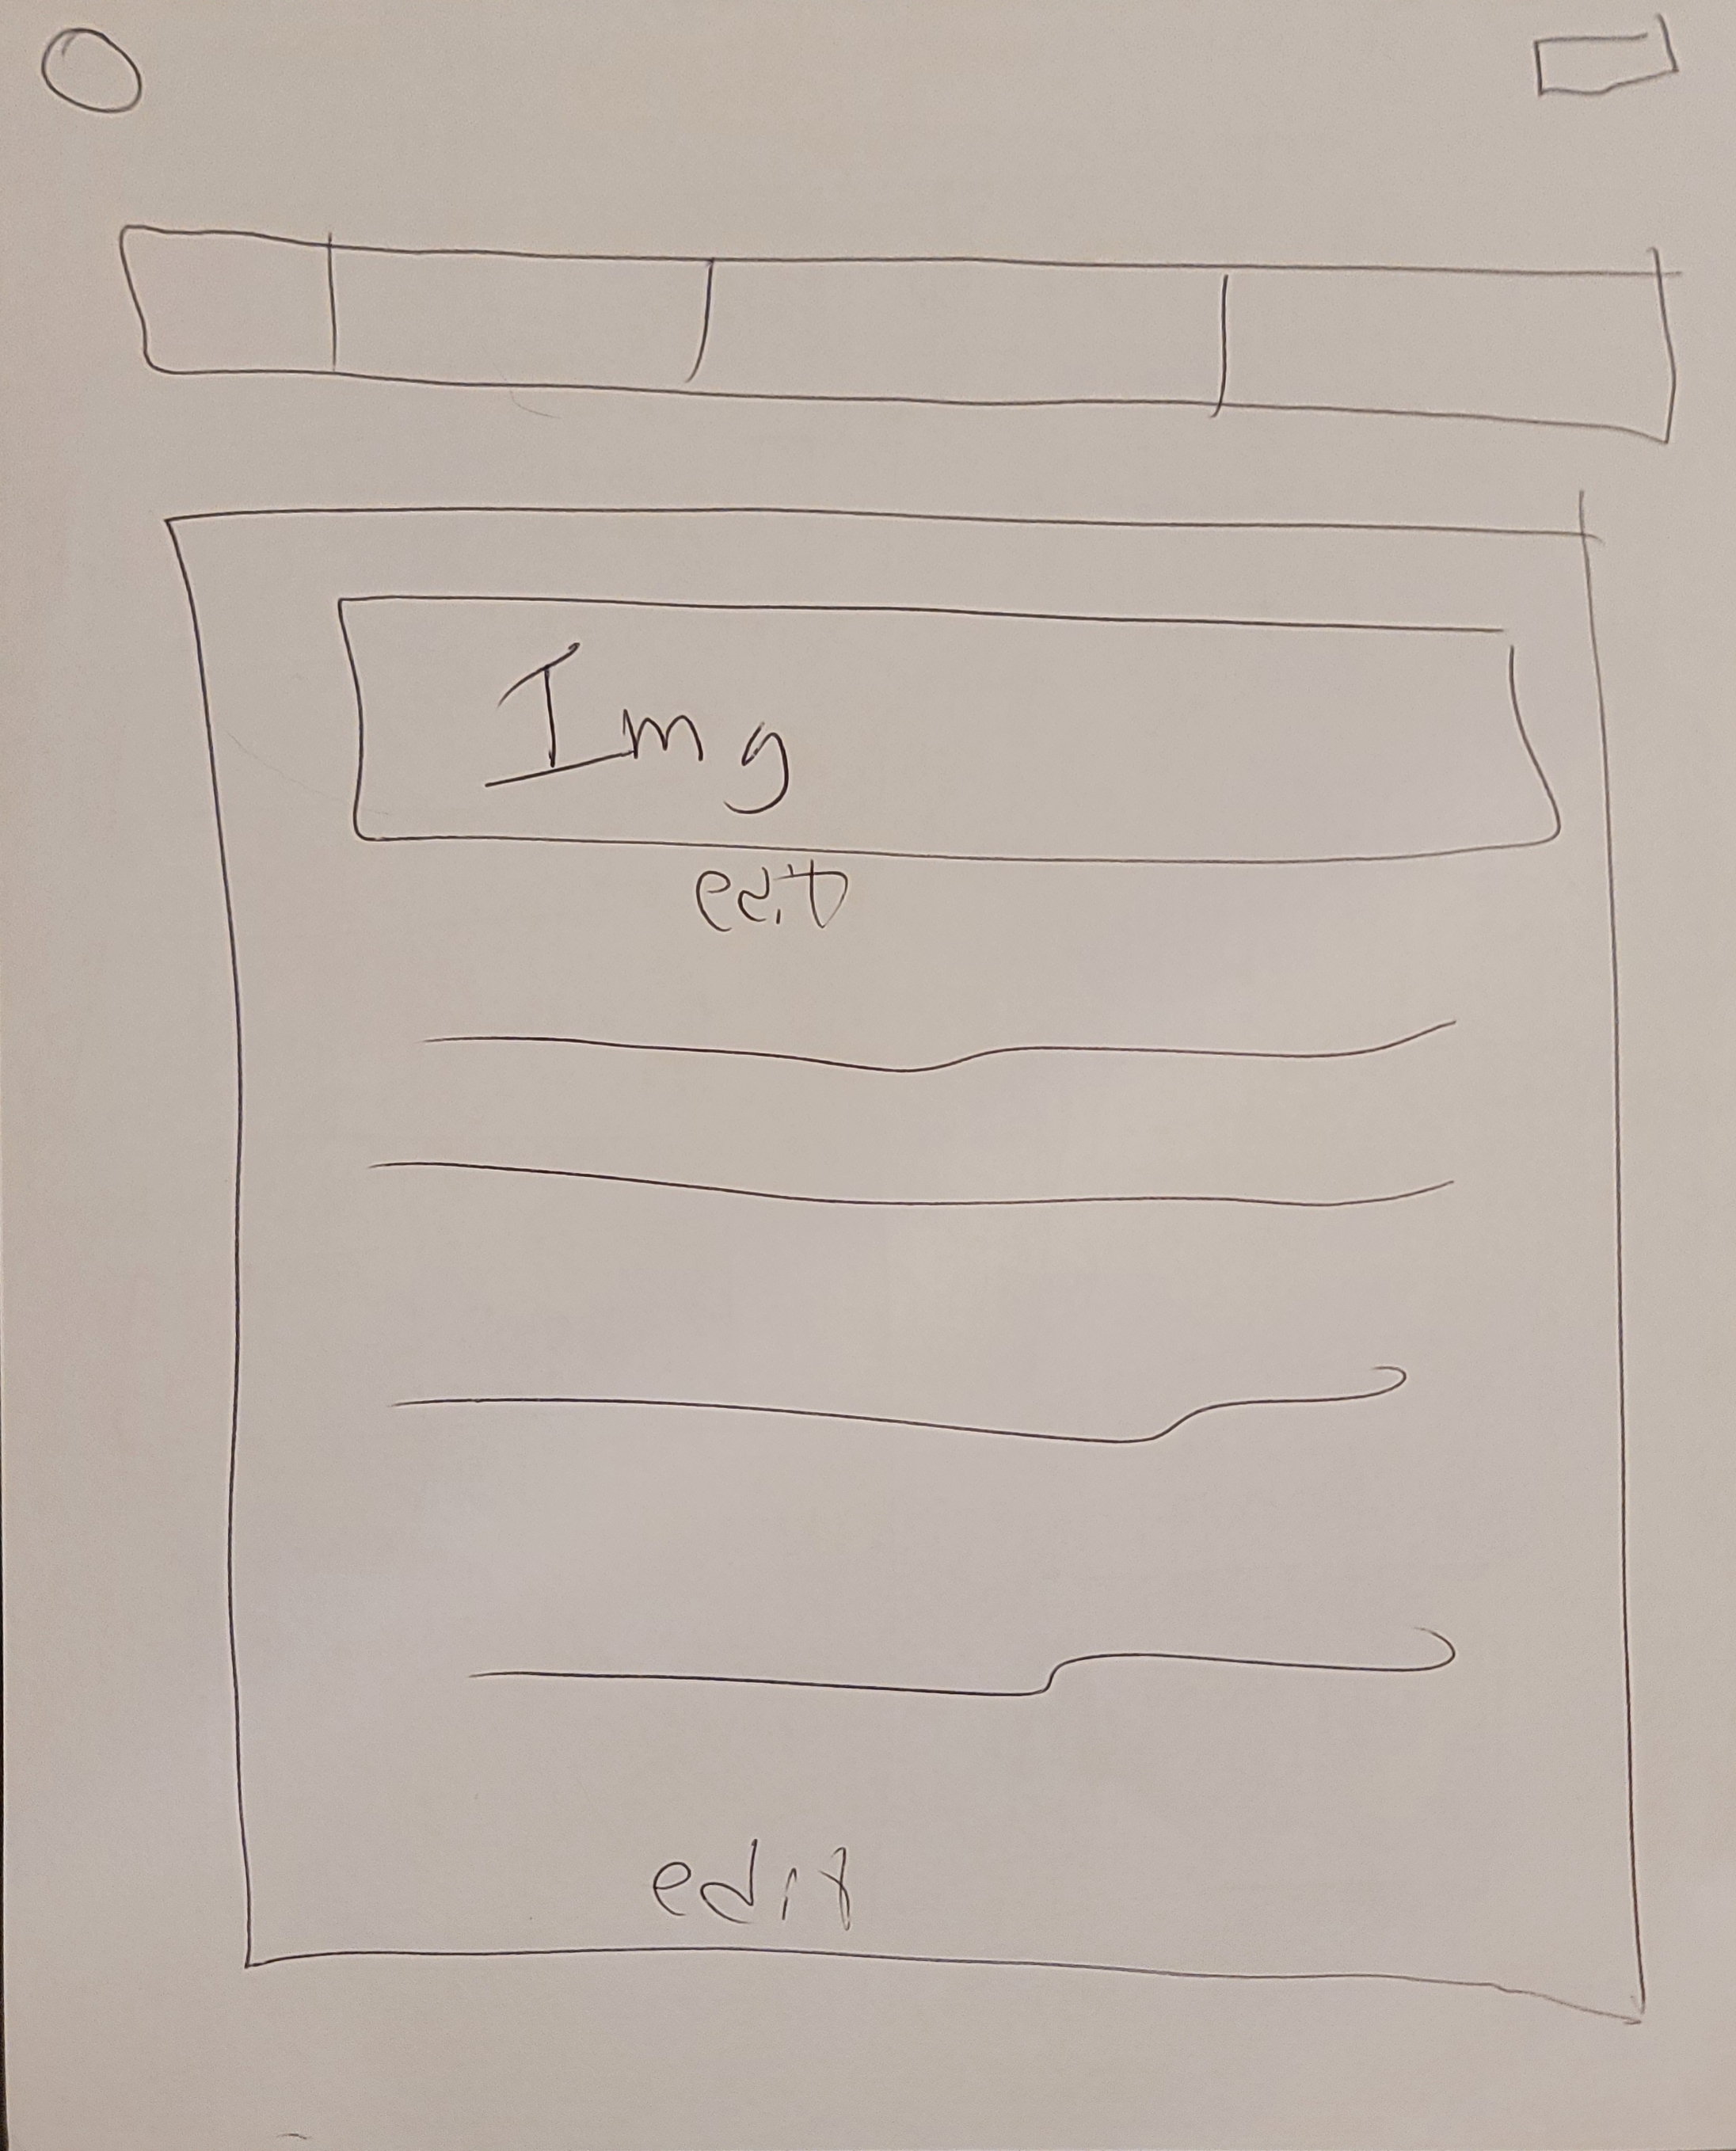 Img
edit
edit